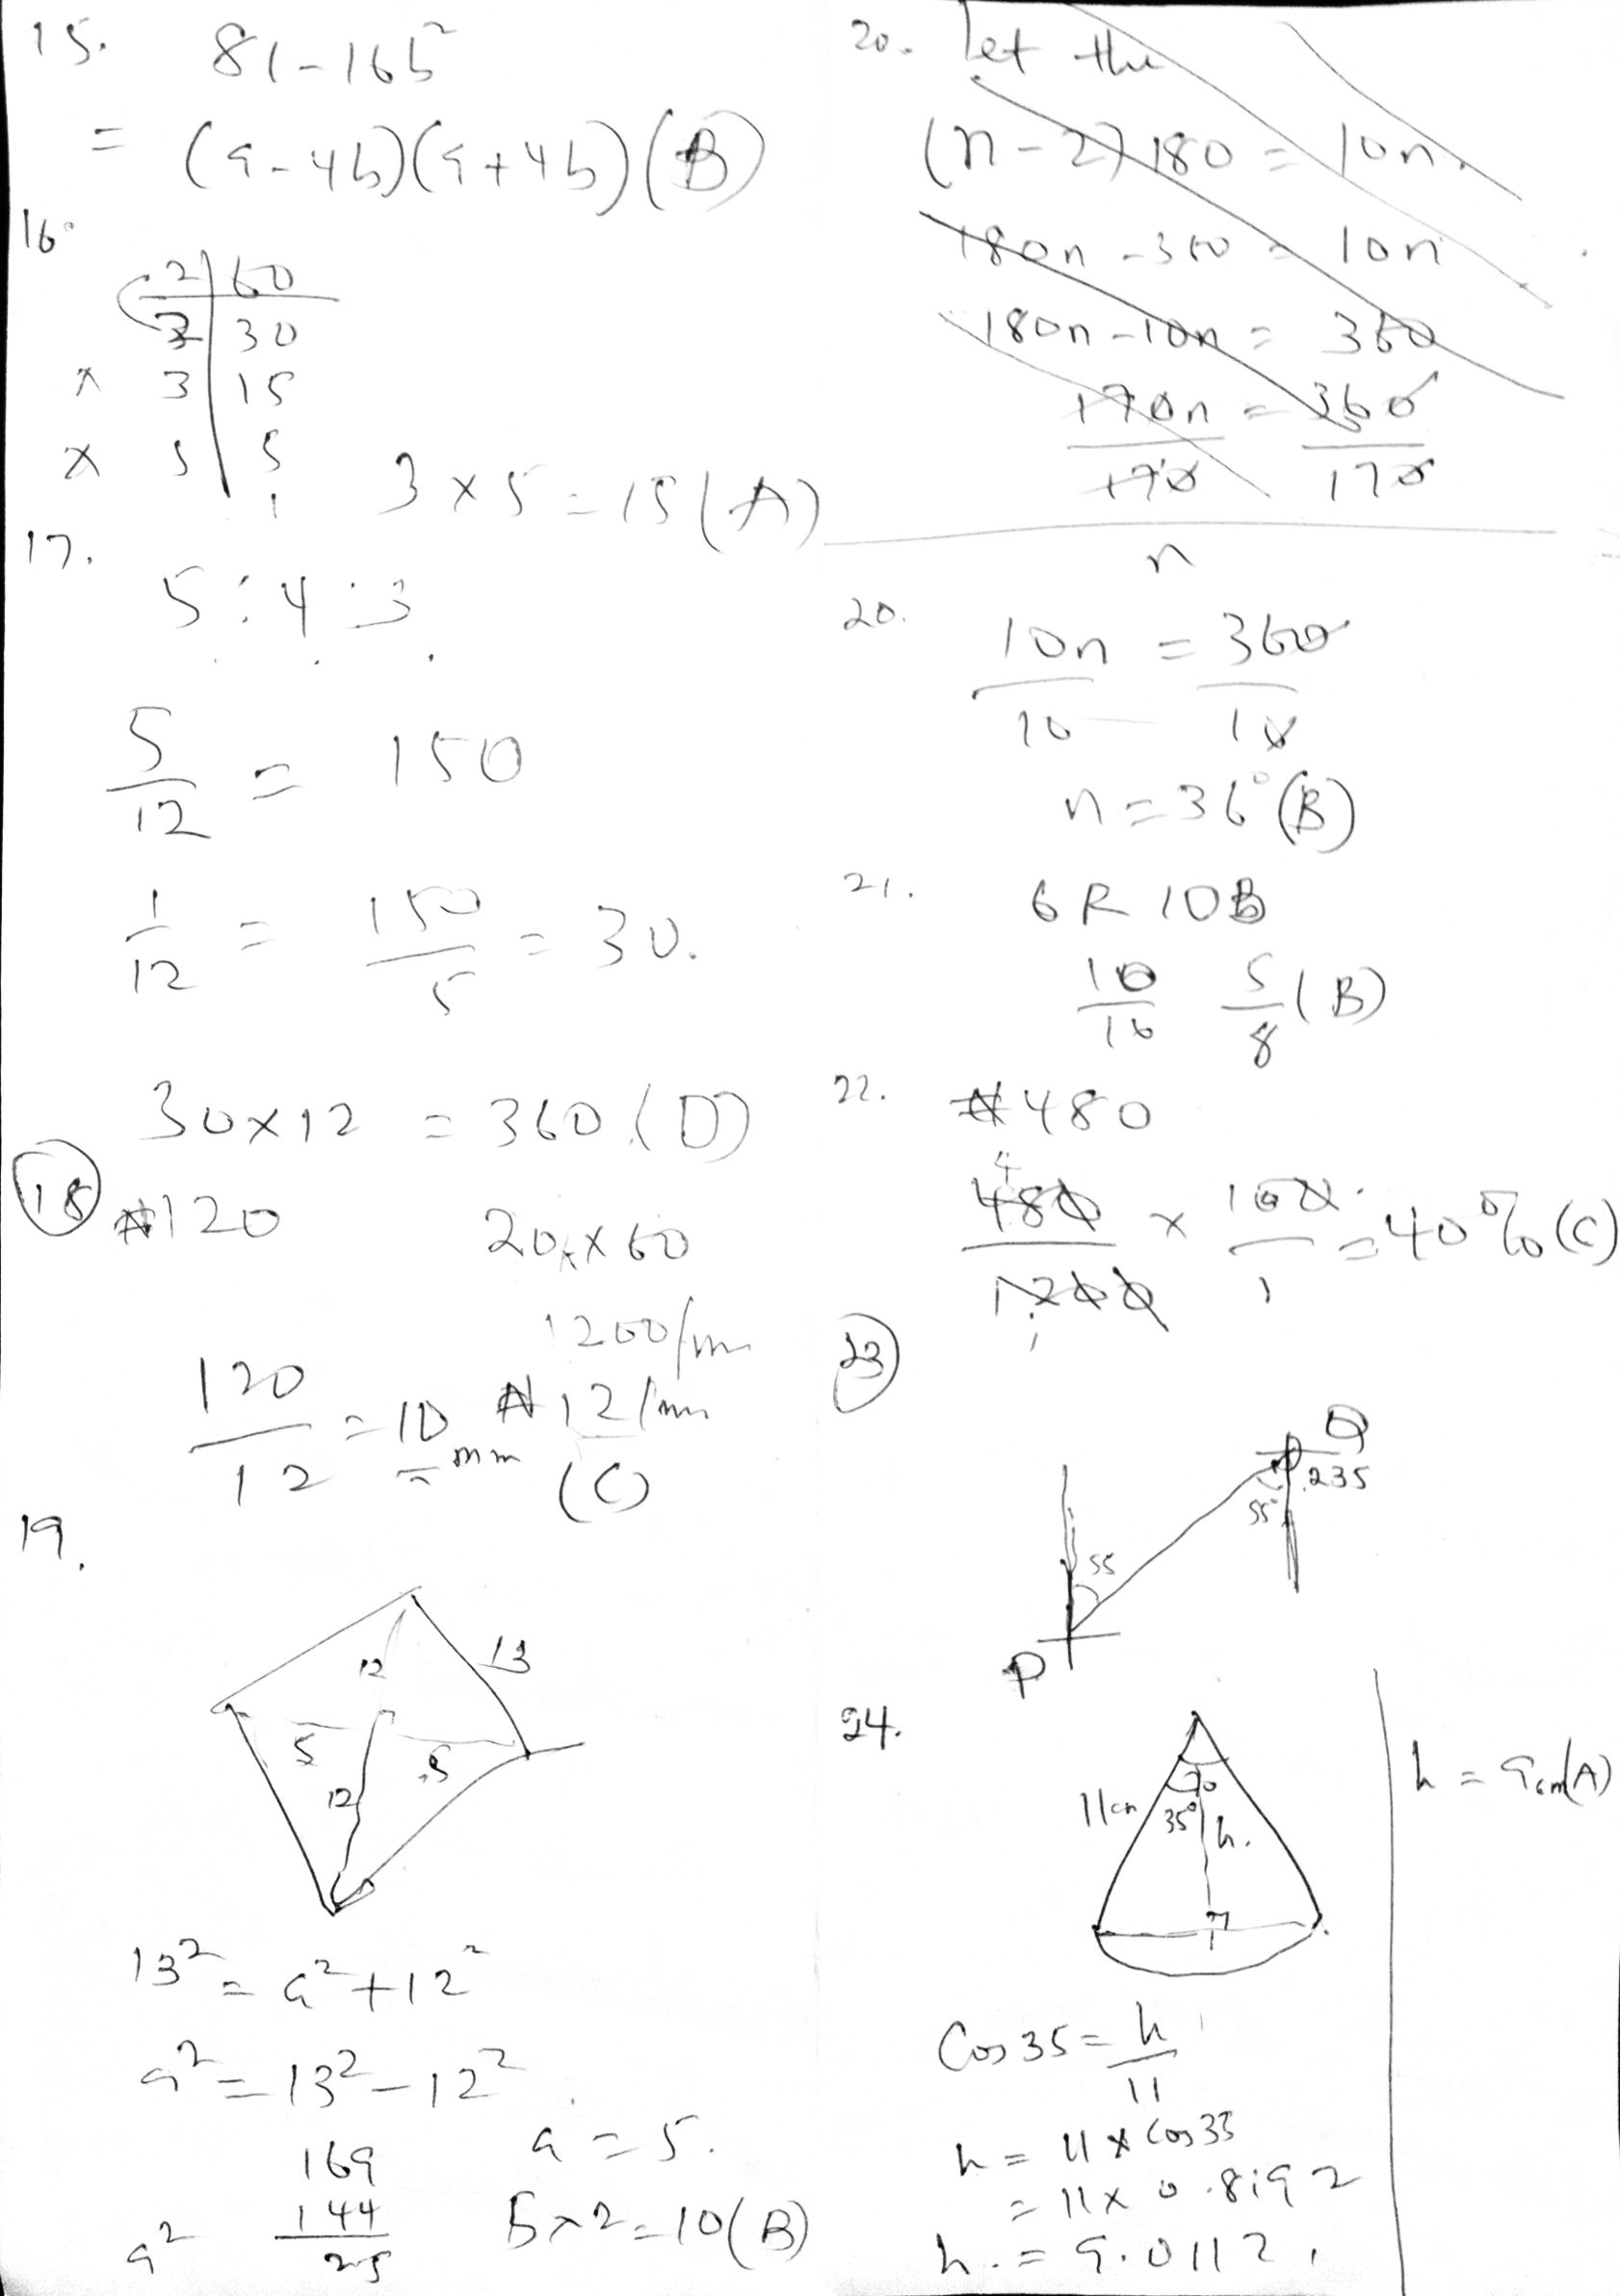 15. 81-16b²
= (9-4b)(9+4b)(B)
16.
2 | 60
2 | 30
x 3 | 15
x 5 | 5
1
3 x 5 = 15 (A)
17.
5 : 4 : 3
5/12 = 150
1/12 = 150/5 = 30.
30x12 = 360 (D)
18 ₦120
20 x 60
1200/m
120/12 = 10 mm
₦12/mm
(C)
19.
12
13
5
5
12
13² = a²+12²
a² = 13²-12²
a = 5.
169
144
a² 25
5x2=10(B)
20. let the
(n-2)180 = 10n.
180n-360 = 10n
180n-10n = 360
170n/170 = 360/170
n
20.
10n/10 = 360/10
n=36° (B)
21. 6R 10B
10/16 5/8 (B)
22. ₦480
4
480/1200 x 100/1 = 40% (C)
1
23
Q
235
55°
55
P
24.
11cm
70
35°
h.
Cos35 = h/11
h = 11 x Cos35
= 11x0.8192
h. = 9.0112.
h = 9cm(A)